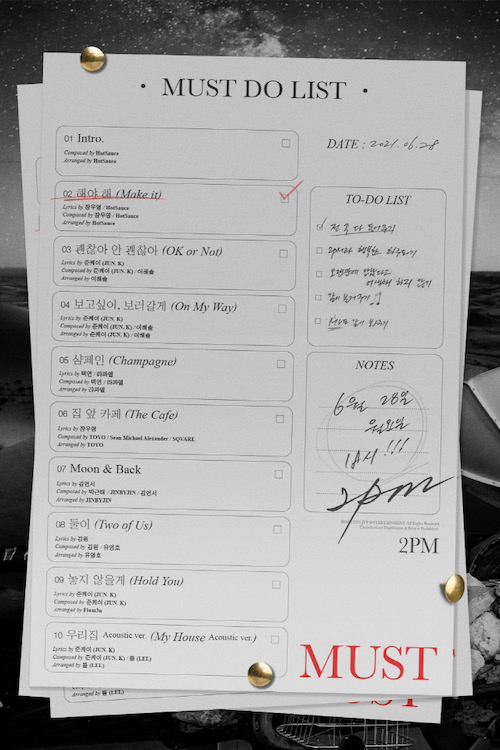 · MUST DO LIST ·
01 Intro.
Composed by HotSauce
Arranged by HotSauce
02 해야 해 (Make it)
Lyrics by 장우영 / HotSauce
Composed by 장우영 / HotSauce
Arranged by HotSauce
03 괜찮아 안 괜찮아 (OK or Not)
Lyrics by 준케이 (JUN. K)
Composed by 준케이 (JUN. K) / 이해솔
Arranged by 이해솔
04 보고싶어, 보러갈게 (On My Way)
Lyrics by 준케이 (JUN. K)
Composed by 준케이 (JUN. K) / 이해솔
Arranged by 준케이 (JUN. K) / 이해솔
05 샴페인 (Champagne)
Lyrics by 택연 / 라파엘
Composed by 택연 / 라파엘
Arranged by 라파엘
06 집 앞 카페 (The Cafe)
Lyrics by 장우영
Composed by TOYO / Sean Michael Alexander / SQVARE
Arranged by TOYO
07 Moon & Back
Lyrics by 김연서
Composed by 박근태 / JINBYJIN / 김연서
Arranged by JINBYJIN
08 둘이 (Two of Us)
Lyrics by 김원
Composed by 김원 / 유영호
Arranged by 유영호
09 놓지 않을게 (Hold You)
Lyrics by 준케이 (JUN. K)
Composed by 준케이 (JUN. K)
Arranged by Flum3n
10 우리집 Acoustic ver. (My House Acoustic ver.)
Lyrics by 준케이 (JUN. K)
Composed by 준케이 (JUN. K) / 룰 (LEL)
Arranged by 룰 (LEL)
DATE : 2021. 06. 28
TO-DO LIST
NOTES
6월 28일
월요일
18시 !!!
2pm
2PM
MUST
(LEL)